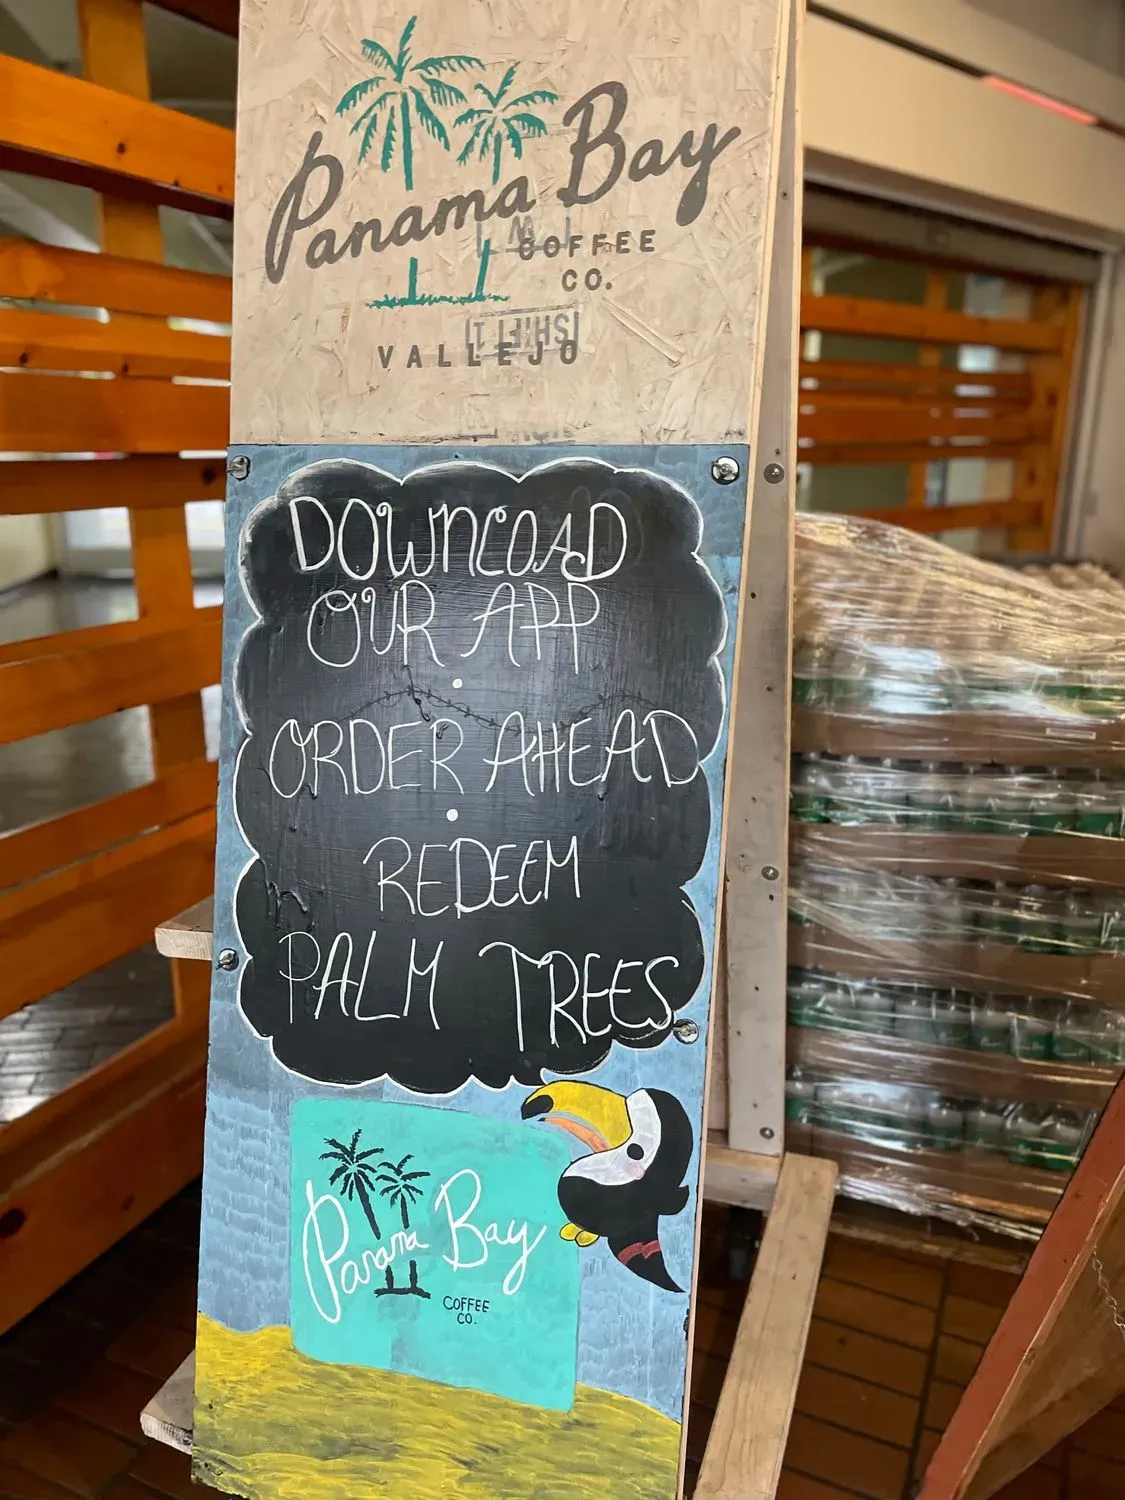 Panama Bay
COFFEE
CO.
VALLEJO
DOWNLOAD
OUR APP
ORDER AHEAD
REDEEM
PALM TREES
Panama Bay
COFFEE
CO.